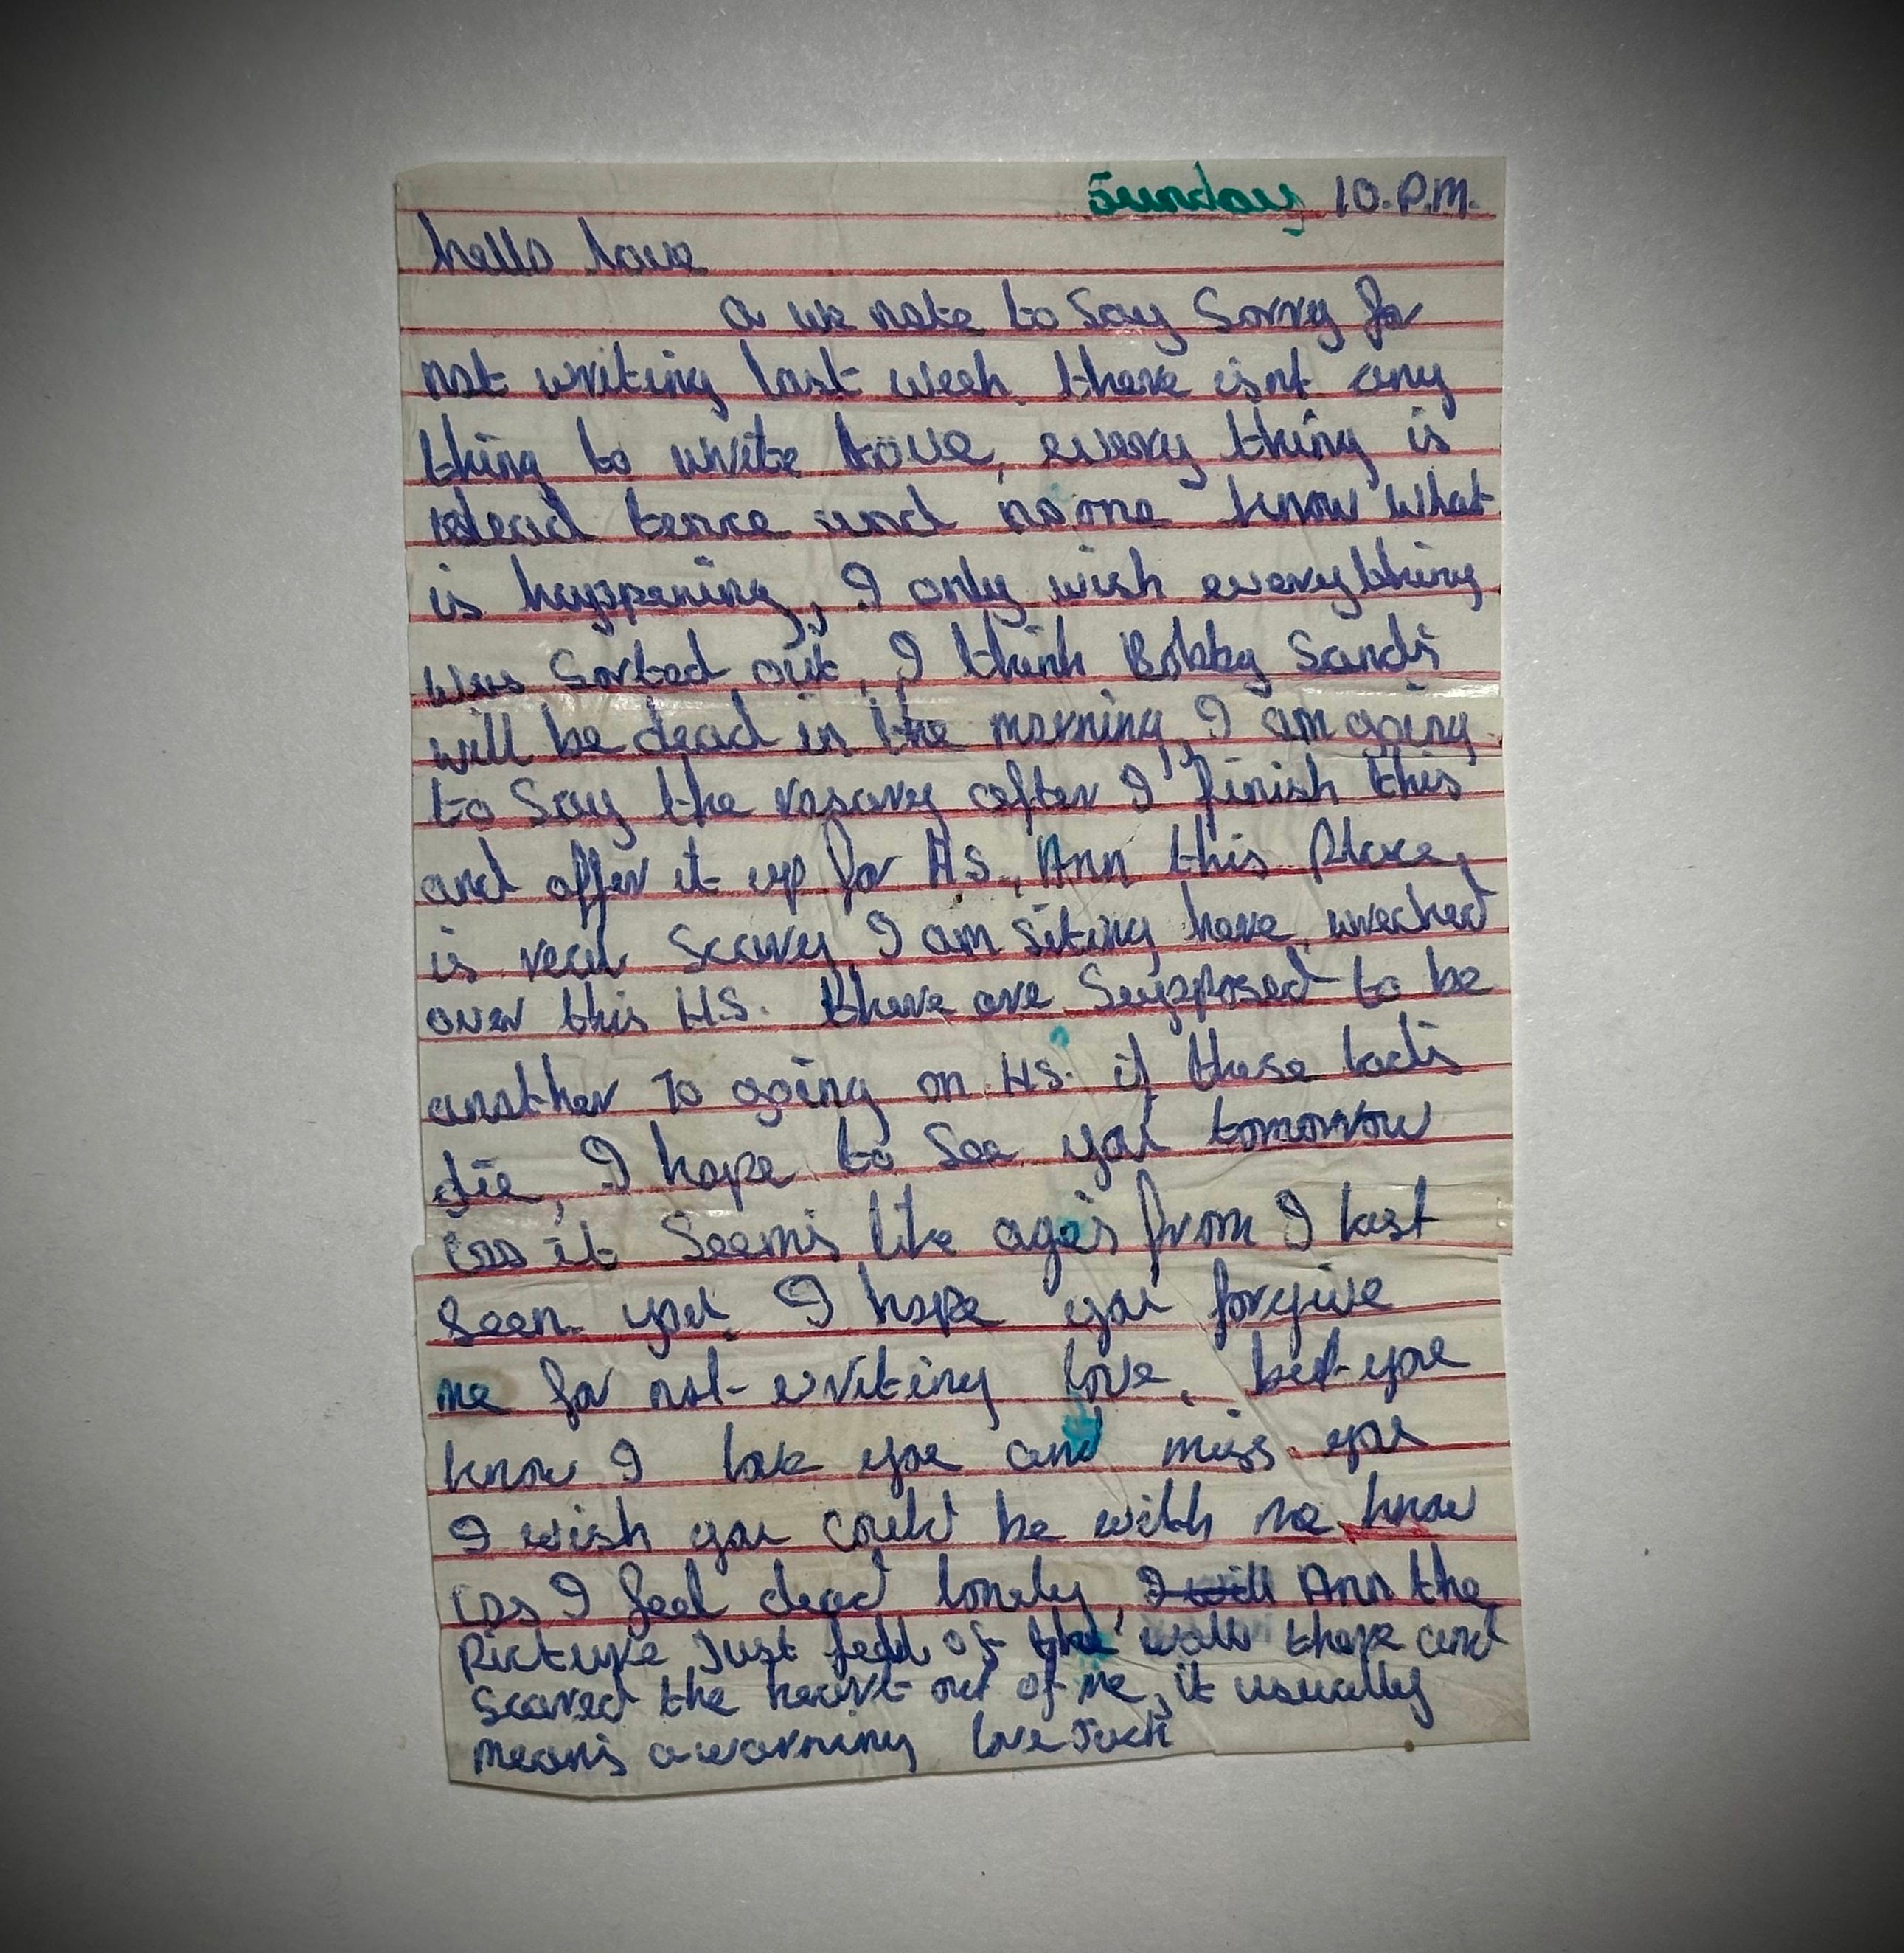 Sunday 10.P.M.
hello love
a we note to Say Sorry for
not writing last week. there isnt any
thing to write love, every thing is
dead tence and noone know what
is happening, I only wish everything
was Sorted out, I think Bobby Sands
will be dead in the morning, I am going
to Say the rosary after I finish this
and offer it up for H.S., Ann this place,
is real scarey I am siting here, wrecked
over this H.S. there are Supposed to be
another 70 going on H.S. if these lads
die, I hope to See you tomorrow
cos it Seems like ages from I last
Seen you. I hope you forgive
me for not writing love, but you
know I love you and miss you
I wish you could be with me know
cos I feel dead lonely, I will Ann the
Picture Just fell of the wall there and
scared the heart out of me, it usually
means a warning love Jack